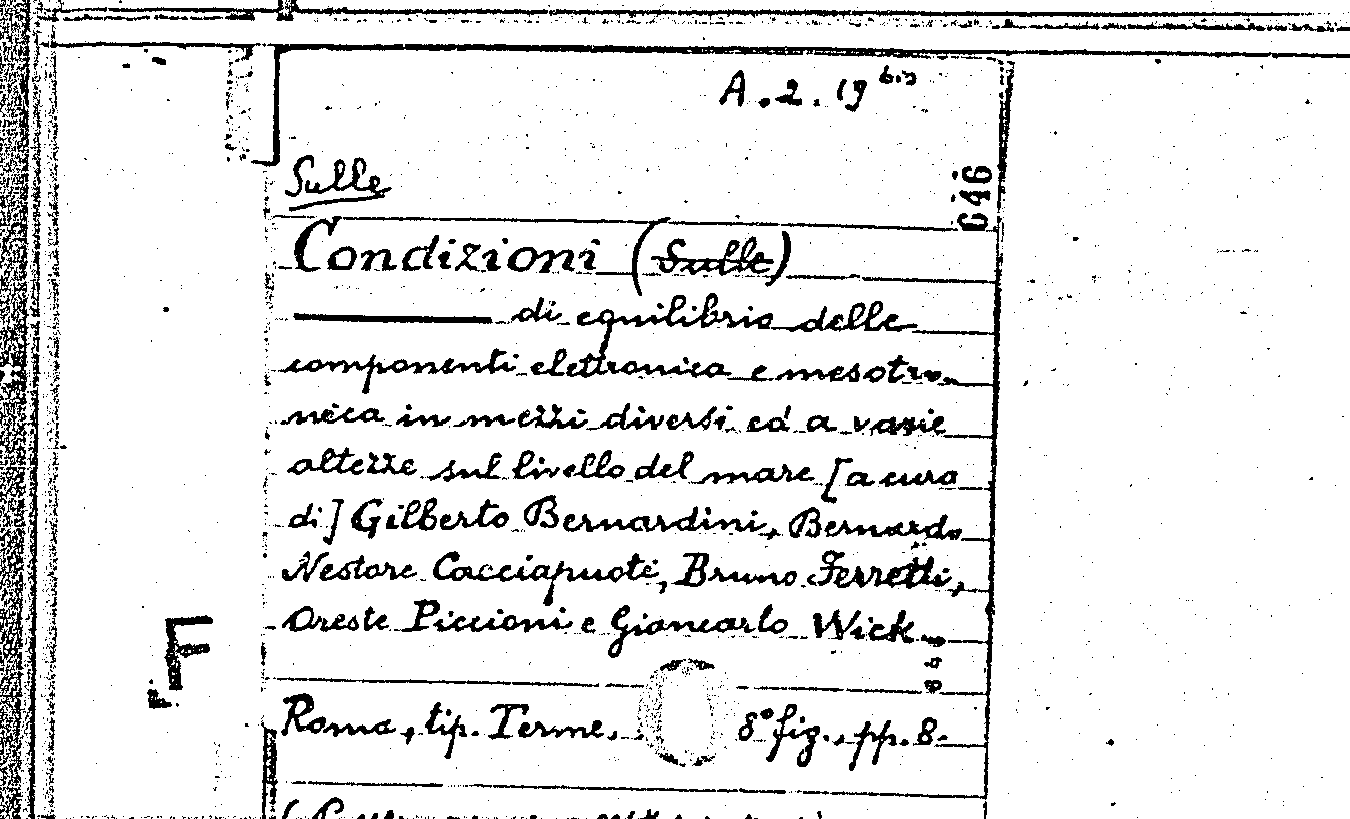 A.2.19 bis
646
Sulle
Condizioni (Sulle)
di equilibrio delle
componenti elettronica e mesotro-
nica in mezzi diversi ed a varie
altezze sul livello del mare [a cura
di] Gilberto Bernardini, Bernardo
Nestore Cacciapuoti, Bruno Ferretti,
Oreste Piccioni e Giancarlo Wick.
Roma, tip. Terme, 8° fig., pp. 8.
F